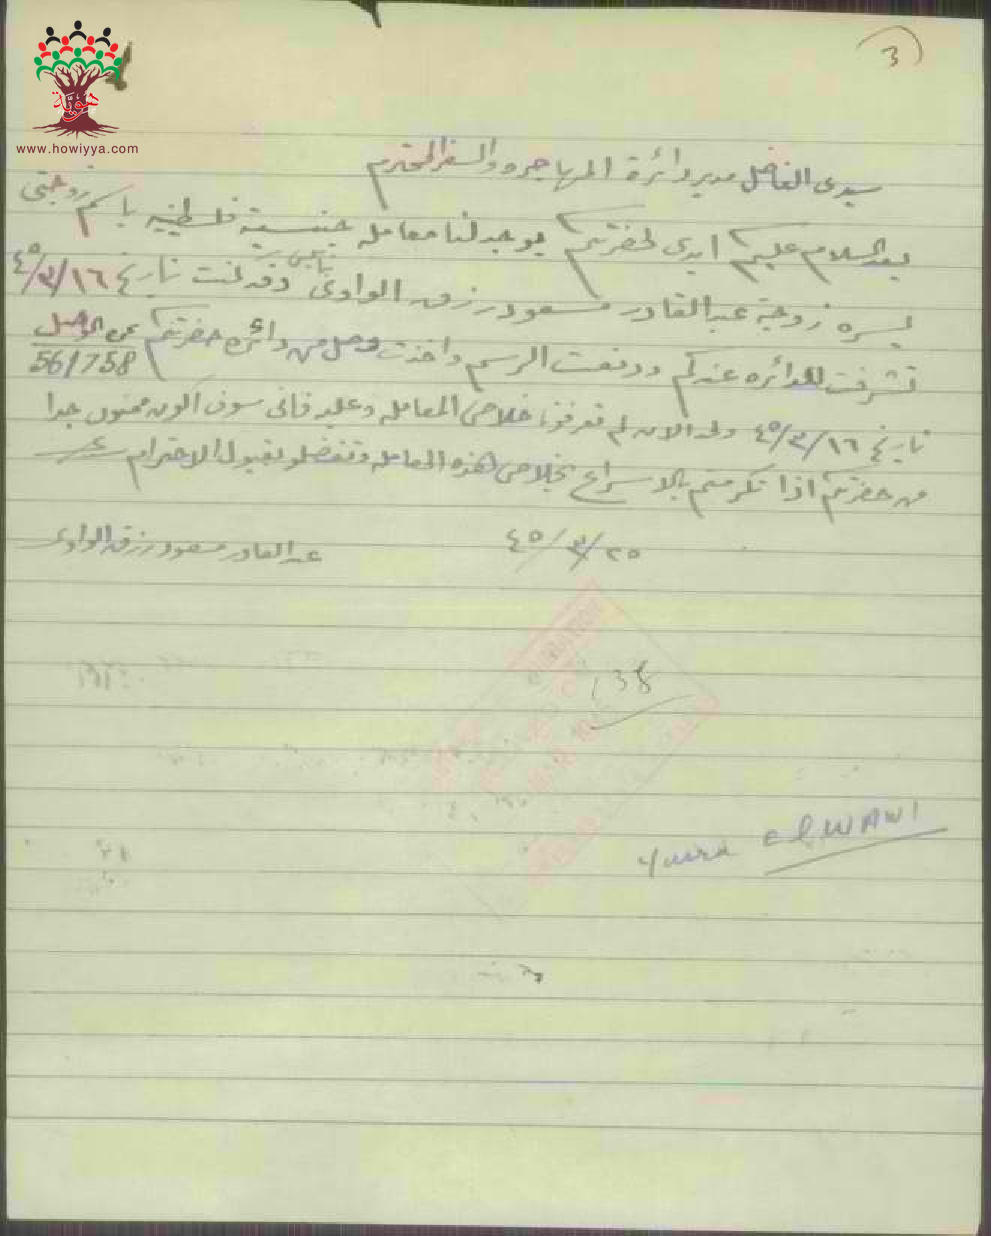 3
هوية
www.howiyya.com
سيدي الفاضل مدير دائرة المهاجره والسفر المحترم
بعد السلام عليكم ابدي لحضرتكم يوجد لنا معامله جنسية فلسطينيه باسم زوجتي
يسره زوجة عبد القادر مسعود رزق الوادي وقد كنت تاريخ ١٦/٣/٤٥
تشرفت للدائره عندكم ودفعت الرسم واخذت وصل من دائرة حضرتكم نمرة الوصل
56/758
تاريخ ١٦/٣/٤٥ ولحد الان لم تعرفونا خلاص المعامله وعليه فاني سوف اكون ممنون جدا
من حضرتكم اذا تكرمتم بالاسراع بخلاص هذه المعامله وتفضلو بقبول الاحترام
٢٥/٣/٤٥
عبد القادر مسعود رزق الوادي
138
Yusra elWAWI